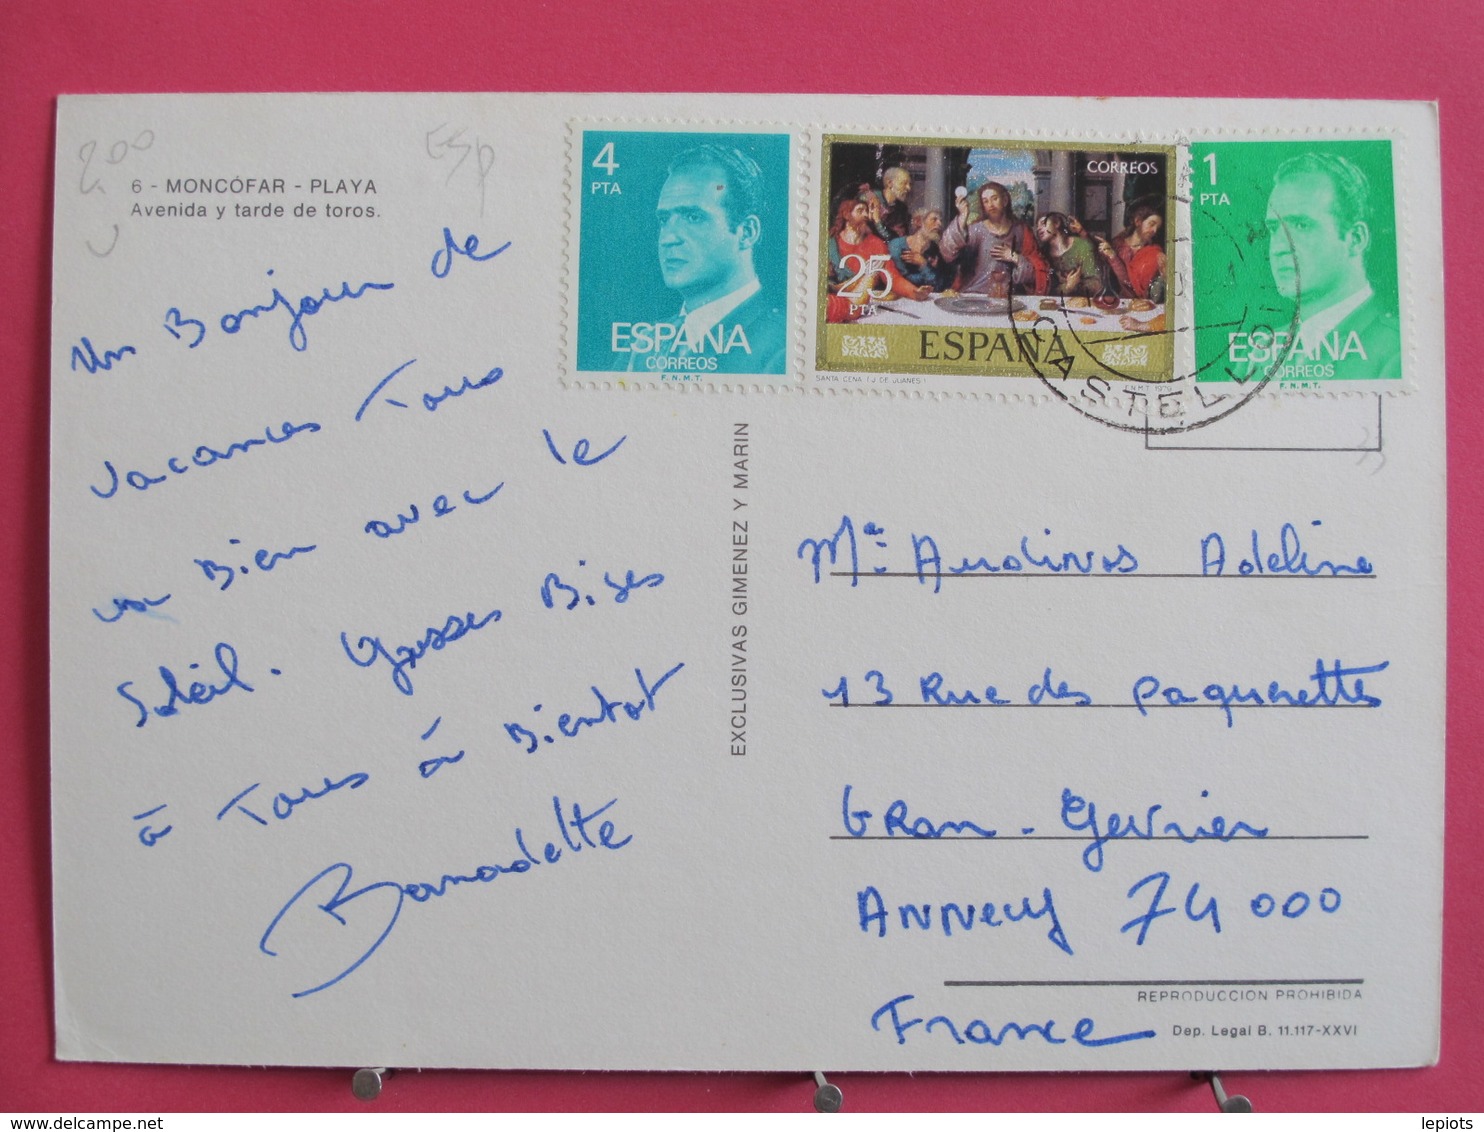 200
Esp
6 - MONCÓFAR - PLAYA
Avenida y tarde de toros.
Un Bonjour de
Vacances Tous
va Bien avec le
Soleil. Grosses Bises
à Tous à Bientot
Bernadette
4
PTA
ESPAÑA
CORREOS
F.N.M.T.
CORREOS
25
PTA
ESPAÑA
SANTA CENA (J. DE JUANES)
F.N.M.T. 1979
1
PTA
ESPAÑA
CORREOS
F.N.M.T.
CASTELLO
EXCLUSIVAS GIMENEZ Y MARIN
Me Audinos Adeline
13 Rue des Paquerettes
Gran-Gevrier
Annecy 74000
France
REPRODUCCION PROHIBIDA
Dep. Legal B. 11.117-XXVI
lepiots
www.delcampe.net